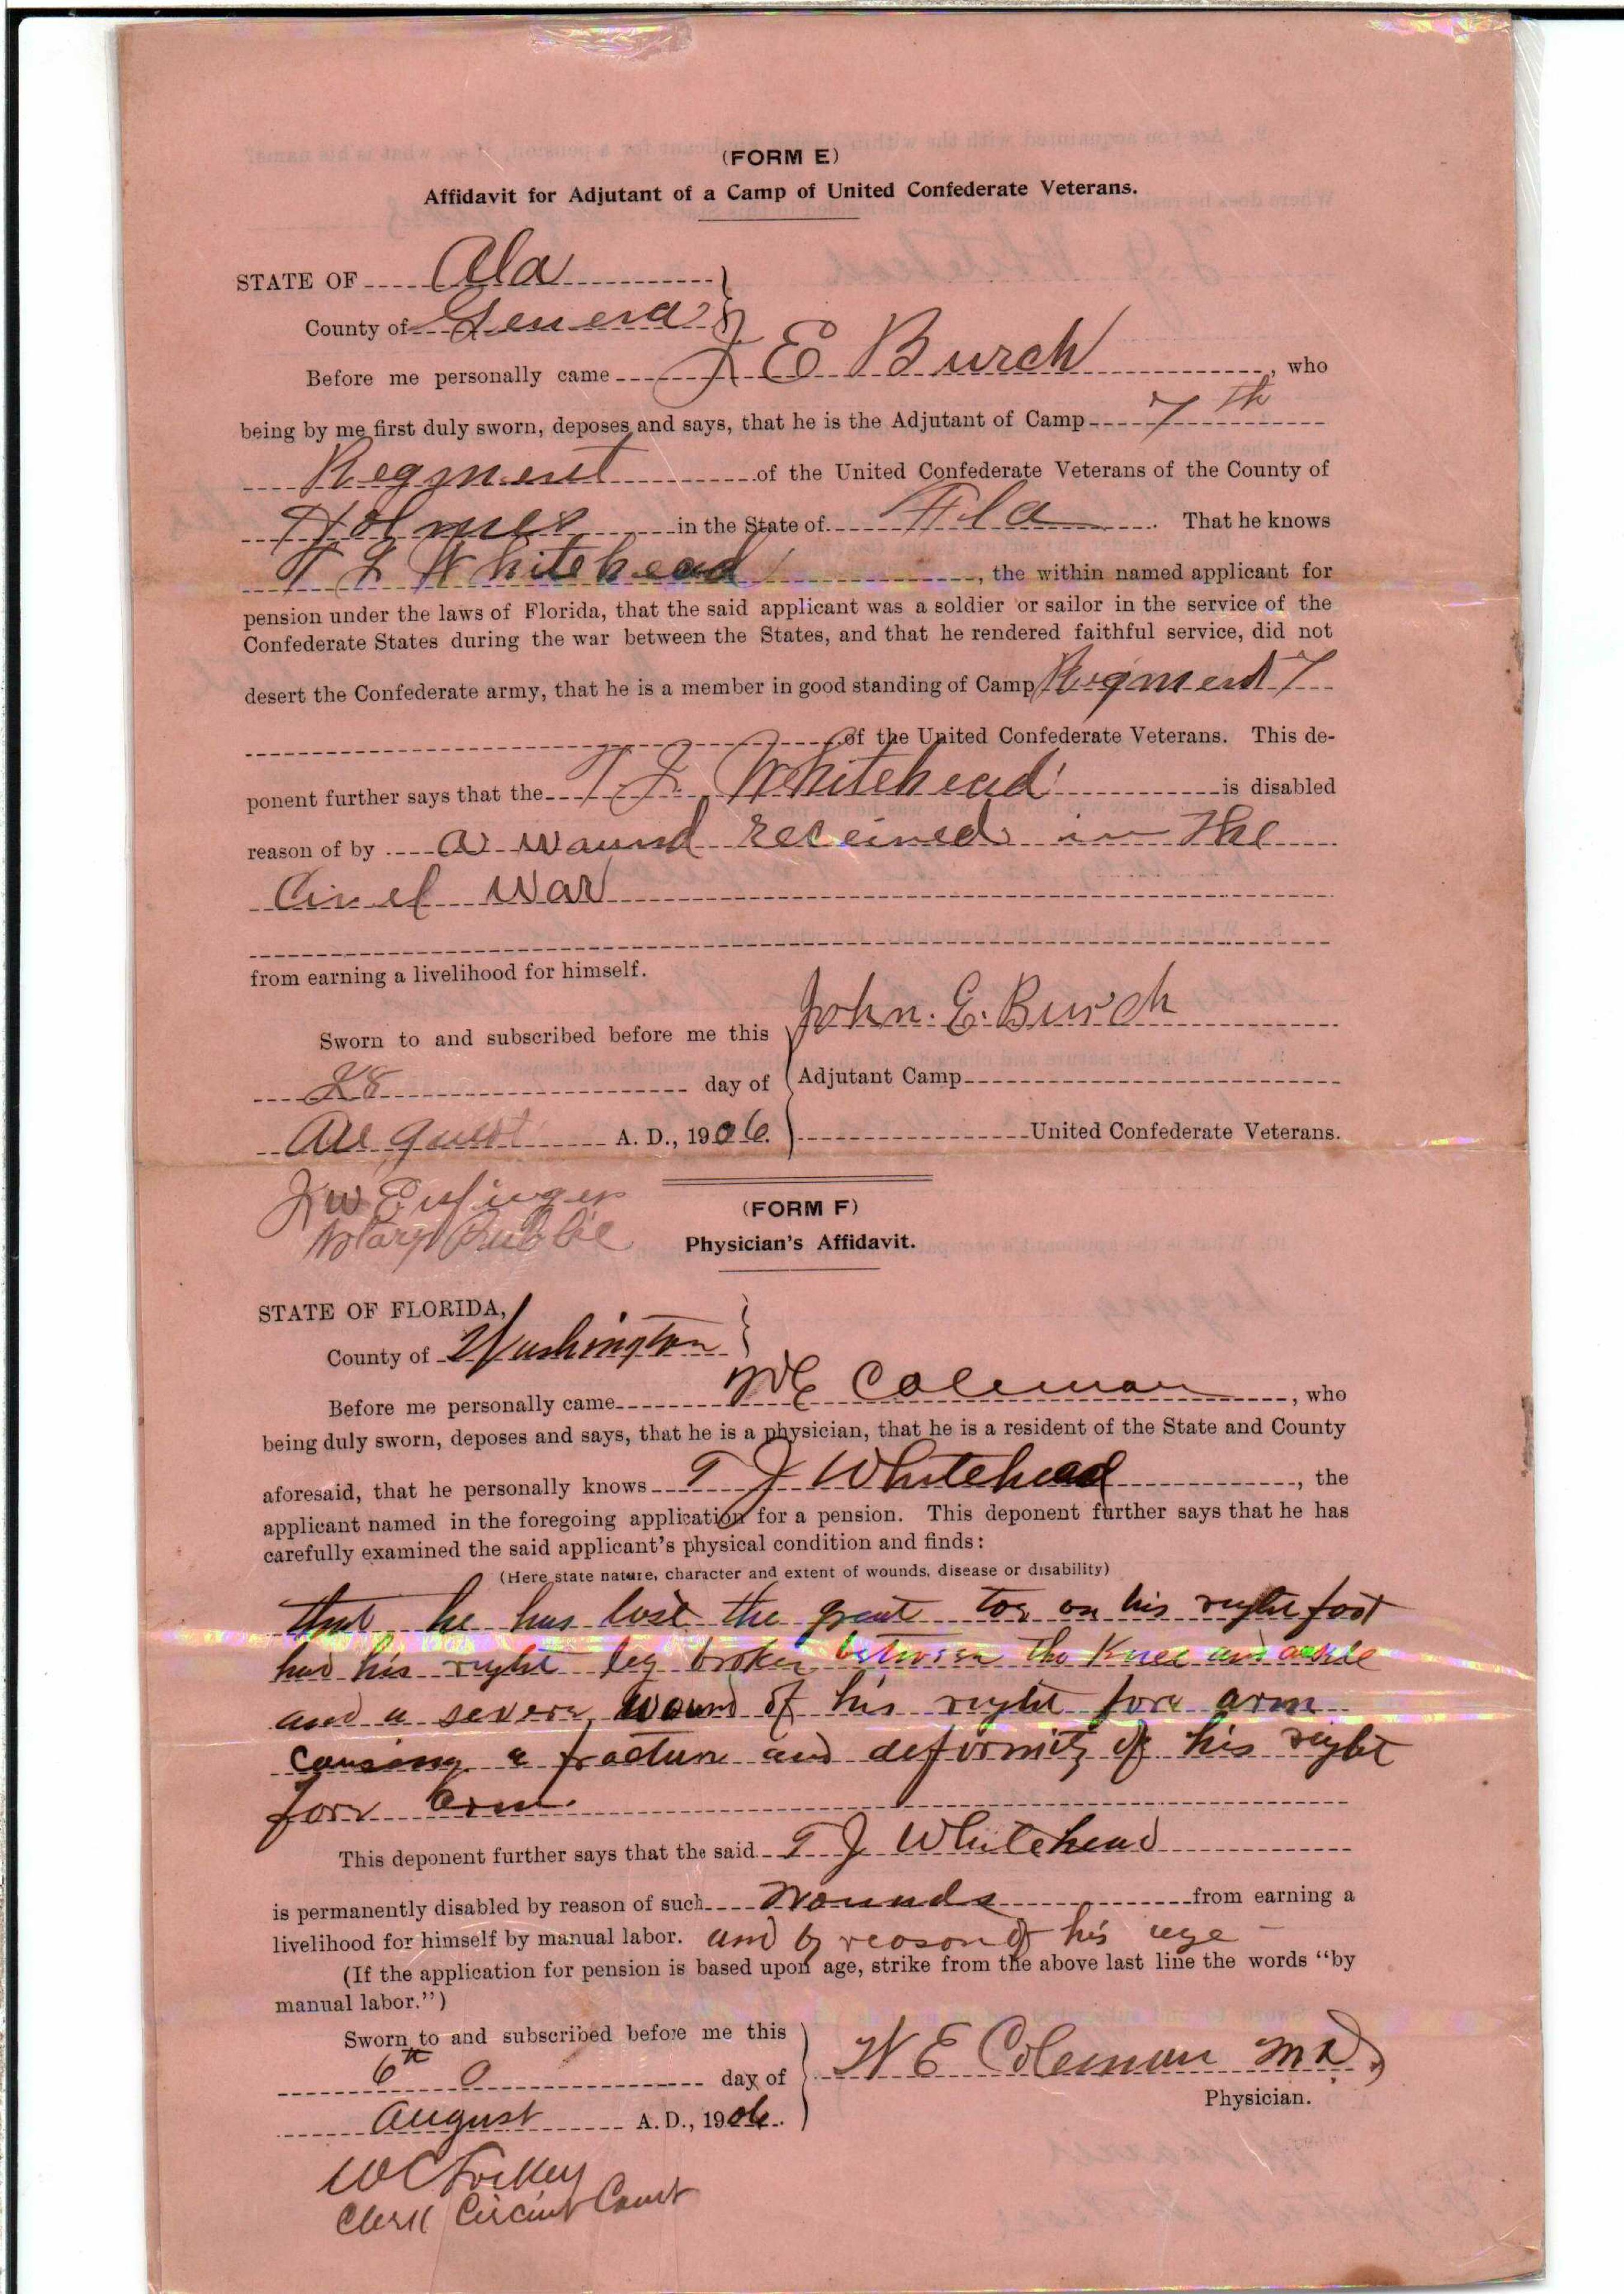 (FORM E)
Affidavit for Adjutant of a Camp of United Confederate Veterans.
STATE OF Ala
County of Geneva
Before me personally came J E Burch, who
being by me first duly sworn, deposes and says, that he is the Adjutant of Camp 7th
Regment of the United Confederate Veterans of the County of
Holmes in the State of Fla. That he knows
T J Whitehead, the within named applicant for
pension under the laws of Florida, that the said applicant was a soldier or sailor in the service of the
Confederate States during the war between the States, and that he rendered faithful service, did not
desert the Confederate army, that he is a member in good standing of Camp Regment 7
of the United Confederate Veterans. This de-
ponent further says that the T J. Whitehead is disabled
reason of by a wound received in the
Civel War
from earning a livelihood for himself.
John. E. Burch
Sworn to and subscribed before me this
28 day of
Adjutant Camp
August A. D., 1906.
United Confederate Veterans.
Notary Public
(FORM F)
Physician's Affidavit.
STATE OF FLORIDA,
County of Washington
Before me personally came W E Coleman, who
being duly sworn, deposes and says, that he is a physician, that he is a resident of the State and County
aforesaid, that he personally knows T J Whitehead, the
applicant named in the foregoing application for a pension. This deponent further says that he has
carefully examined the said applicant's physical condition and finds:
(Here state nature, character and extent of wounds, disease or disability)
that he has lost the great toe on his right foot
had his right leg broken between the Knee and ankle
and a severe wound of his right fore arm
causing a fracture and deformity of his right
fore arm.
This deponent further says that the said T J Whitehead
is permanently disabled by reason of such wounds from earning a
livelihood for himself by manual labor. and by reason of his age
(If the application for pension is based upon age, strike from the above last line the words "by
manual labor.")
Sworn to and subscribed before me this
6th day of
W E Coleman MD
Physician.
August A. D., 1906.
W C Lockey
Clerk Circuit Court